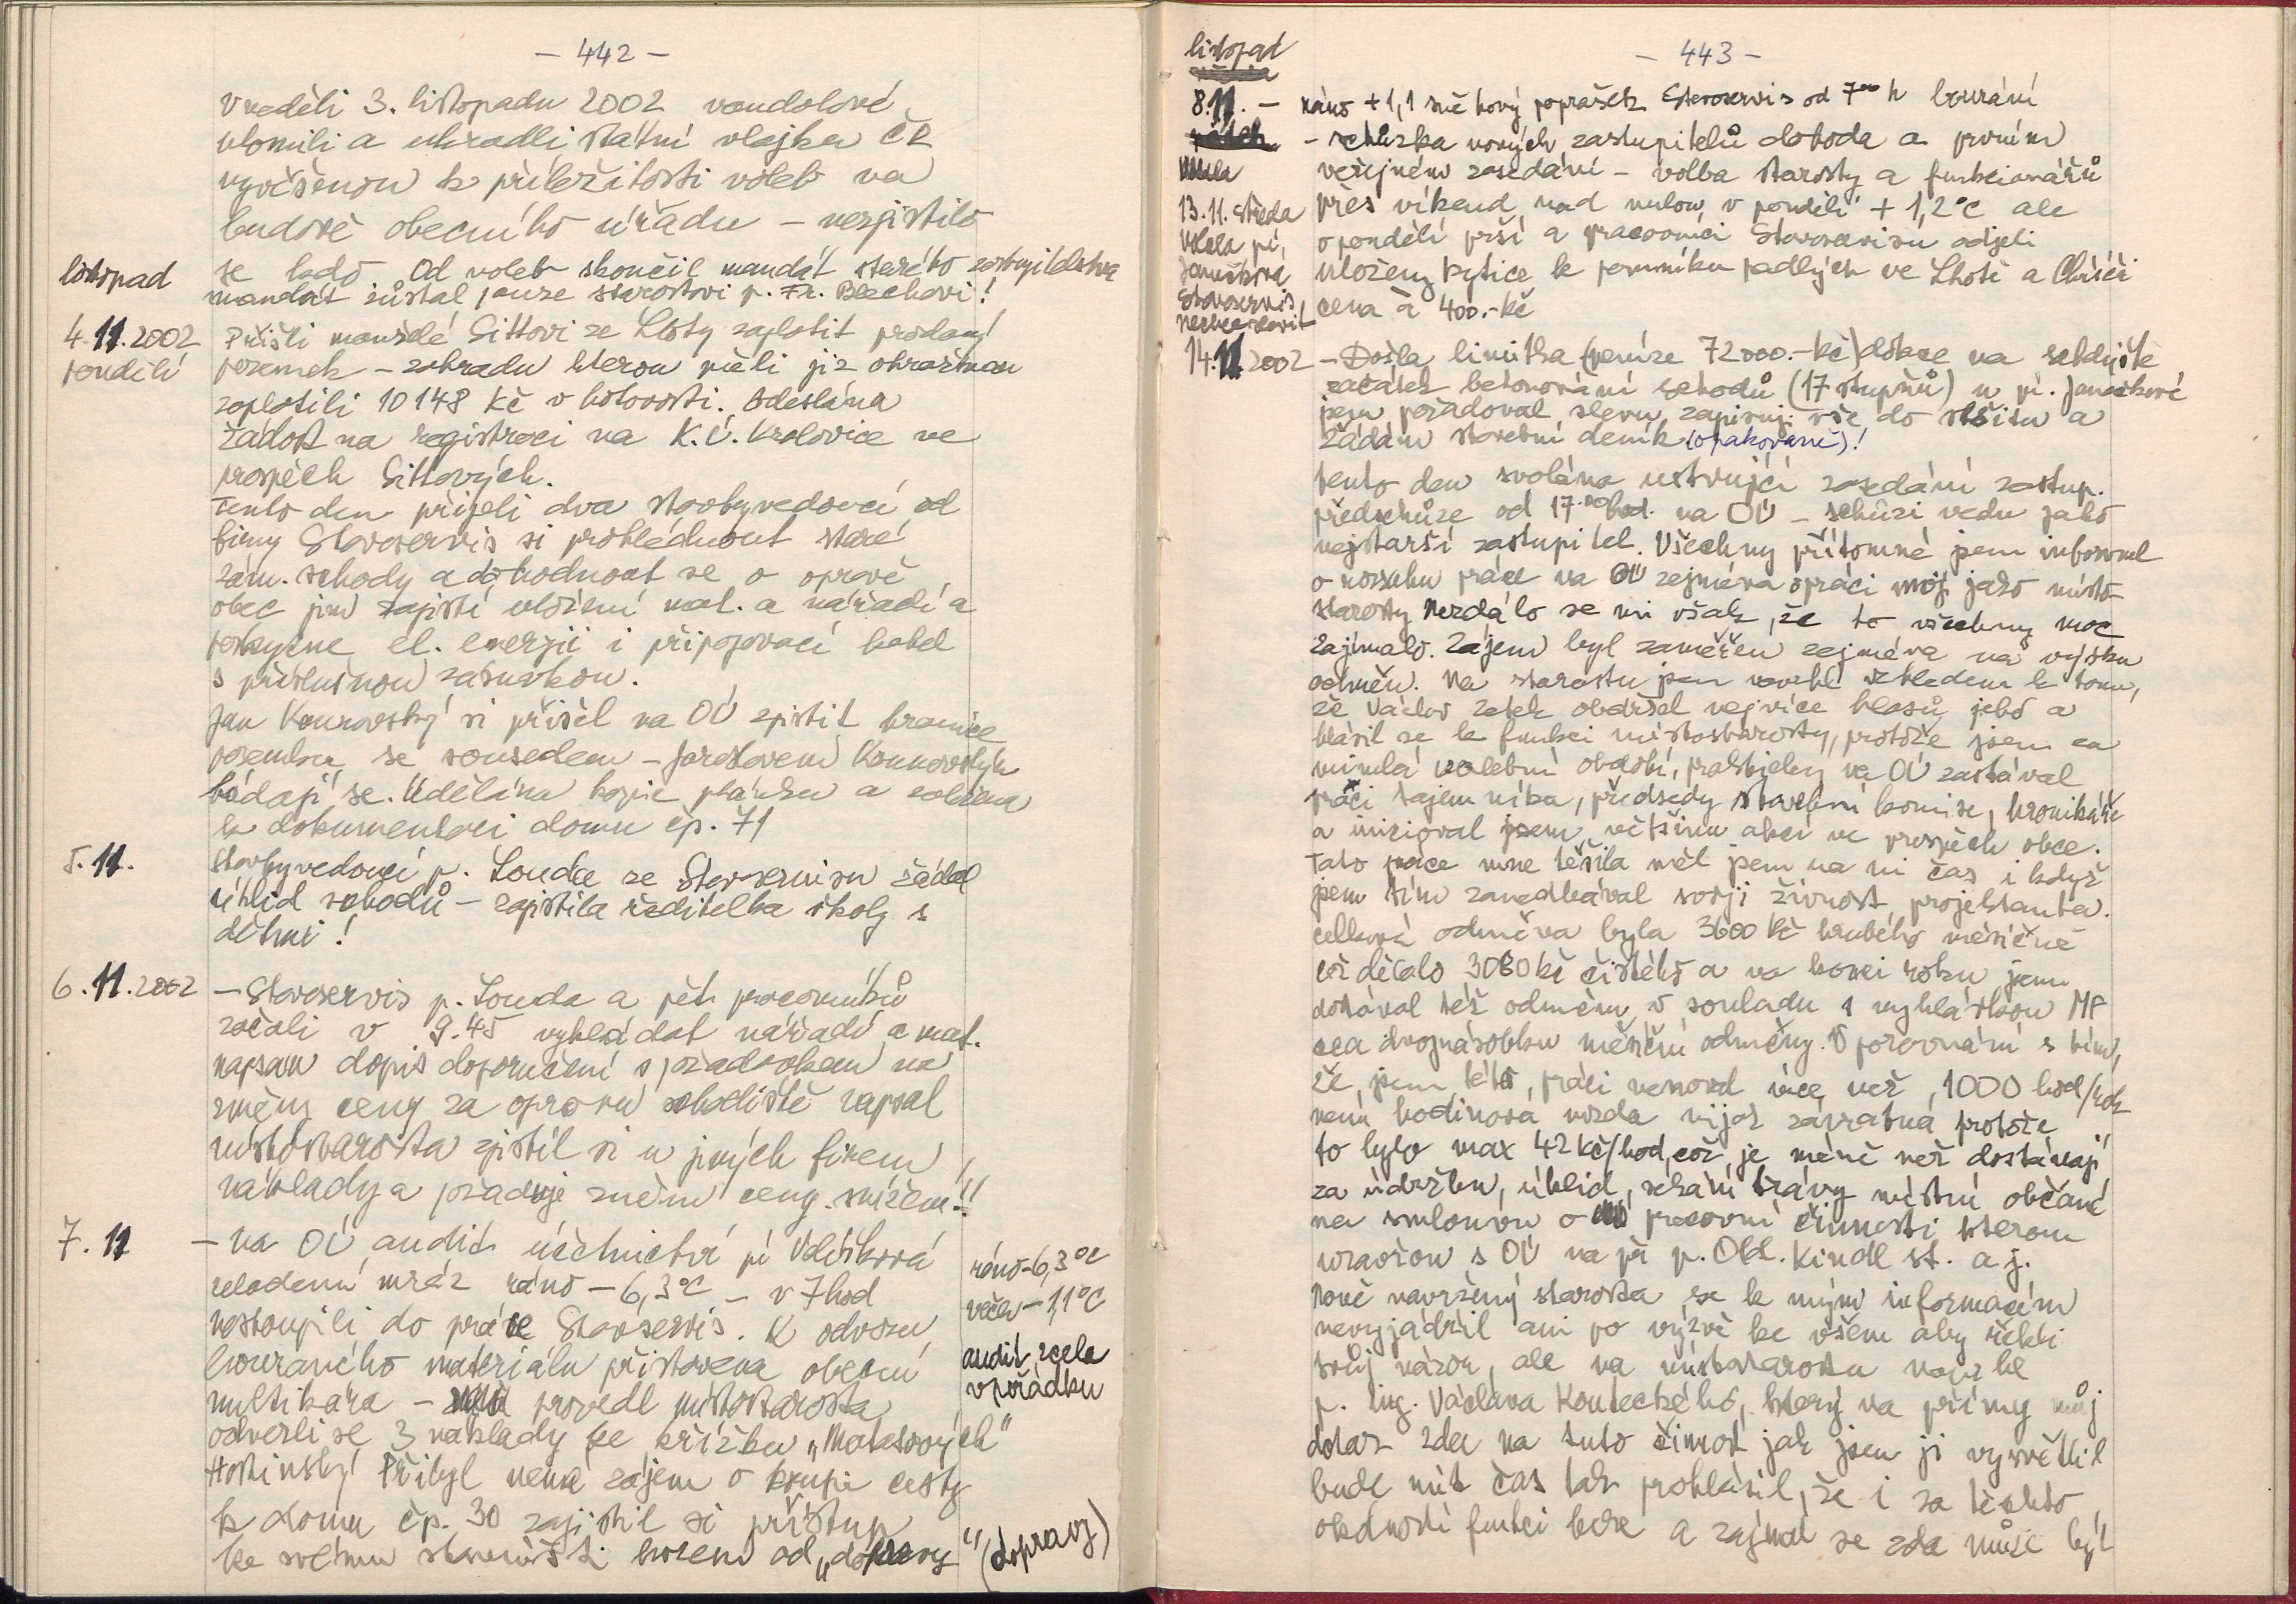 – 442 –
V neděli 3. listopadu 2002 vandalové
ulomili a ukradli státní vlajku ČR
vyvěšenou k příležitosti voleb na
budově obecního úřadu – nezjistilo
listopad
se kdo. Od voleb skončil mandát starého zastupitelstva
mandát zůstal pouze starostovi p. Fr. Blechovi!
4.11.2002
pondělí
Přišli manželé Sittovi ze Lhoty zaplatit prodaný
pozemek – zahradu kterou měli již
zaplatili 10148 Kč v hotovosti. Odeslána
žádost na registraci na K.Ú. Kralovice ve
prospěch Sittových.
Tento den přijeli dva stavbyvedoucí od
firmy Stavoservis si prohlédnout staré
zám. schody a dohodnout se o opravě
obec jim zajistí uložení mat. a nářadí a
poskytne el. energii i připojovací kabel
s příslušnou zásuvkou.
Jan Kounovský si přišel na OÚ zjistit hranice
pozemku se sousedem – Jaroslavem Kounovským
hádají se. Udělána kopie plánku a založena
k dokumentaci domu čp. 71
5.11.
Stavbyvedoucí p. Louda ze Stavoservisu žádal
úklid schodů – zajistila ředitelka školy s
dětmi!
6.11.2002
– Stavoservis p. Louda a pět pracovníků
začali v 9.45 vykládat nářadí a mat.
napsán dopis doporučení s požadavkem na
změnu ceny za opravu schodiště napsal
místostarosta zjistil si u jiných firem
náklady a požaduje změnu ceny. snížení!!
7.11
– na OÚ audit účetnictví pí Vališková
celodenní mráz ráno – 6,3°C – v 7 hod
nastoupili do práce Stavservis. K odvozu
bouraného materiálu přistavena obecní
multikára – provedl místostarosta
odvezli se 3 náklady ke křížku „Matasových"
Hostinský Přibyl nemá zájem o koupi cesty
k domu čp. 30 zajistil si přístup
ke svému staveništi horem od „dopravy"
(dopravy)
ráno -6,3°C
večer – 1,1°C
audit zcela
v pořádku
– 443 –
listopad
8.11. – ráno + 1,1 sněhový poprašek Stavoservis od 7ºº h bourání
– schůzka nových zastupitelů dohoda a prvním
veřejném zasedání – volba starosty a funkcionářů
13.11. středa
volala pí,
Janečková
Stavoservis,
přes víkend nad nulou, v pondělí + 1,2°C ale
o pondělí prší a pracovníci Stavoservisu odjeli
uloženy kytice k pomníku padlých ve Lhotě a
cena à 400.- Kč
14.11 2002
– Došla limitka (peníze 72000.- Kč) dotace na schodiště
začátek betonování schodů (17 stupňů) u pí. Janečkové
jsem požadoval slevu, zapisuji vše do sešitu a
žádám stavební deník (opakovaně)!
tento den svolána ustavující zasedání zastup.
předschůze od 17.ºº hod. na OÚ – schůzi vedu jako
nejstarší zastupitel. Všechny přítomné jsem informoval
o rozsahu práce na OÚ zejména o práci moji jako místo-
starosty. Nezdálo se mi však, že to všechny moc
zajímalo. Zájem byl zaměřen zejména na výšku
odměn. Na starostu jsem navrhl vzhledem k tomu,
že Václav Zátek obdržel nejvíce hlasů jeho a
hlásil se k funkci místostarosty, protože jsem za
minulá volební období, prakticky na OÚ zastával
práci tajemníka, předsedy stavební komise, kronikáře
a inicioval jsem většinu akcí ve prospěch obce.
Tato práce mne těšila měl jsem na ni čas i když
jsem tím zanedbával svoji živnost projektanta.
celková odměna byla 3600 Kč hrubého měsíčně
což dělalo 3080 Kč čistého a na konci roku jsem
dostával též odměnu v souladu s vyhláškou MF
cca dvojnásobku měsíční odměny. V porovnání s tím,
že jsem této práci venoval více než 1000 hod/rok
není hodinová mzda nijak závratná protože
to bylo max 42 Kč/hod, což je méně než dostávají
za údržbu, úklid, sekání trávy místní občané
na smlouvu o pracovní činnosti kterou
uzavřou s OÚ na př p. Old. Kindl st. a j.
Nově navržený starosta se k mým informacím
nevyjádřil ani po výzvě ke všem aby řekli
svůj názor, ale na místostarostu navrhl
p. Ing. Václava Kouteckého, který na přímý můj
dotaz zda na tuto činnost jak jsem ji vysvětlil
bude mít čas tak prohlásil, že i za těchto
okolností funkci bere a zajímal se zda může být